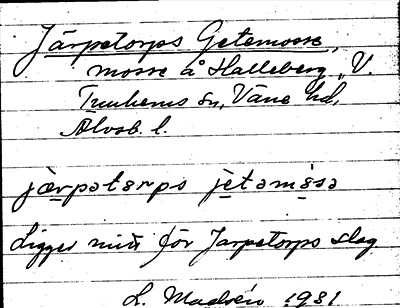 Järpetorps Getemosse,
mosse å Halleberg, V.
Tunhems sn, Väne hd,
Älvsb. l.
jærpətɷrps jetəmåsə
Ligger mitt för Järpetorps slag
1931